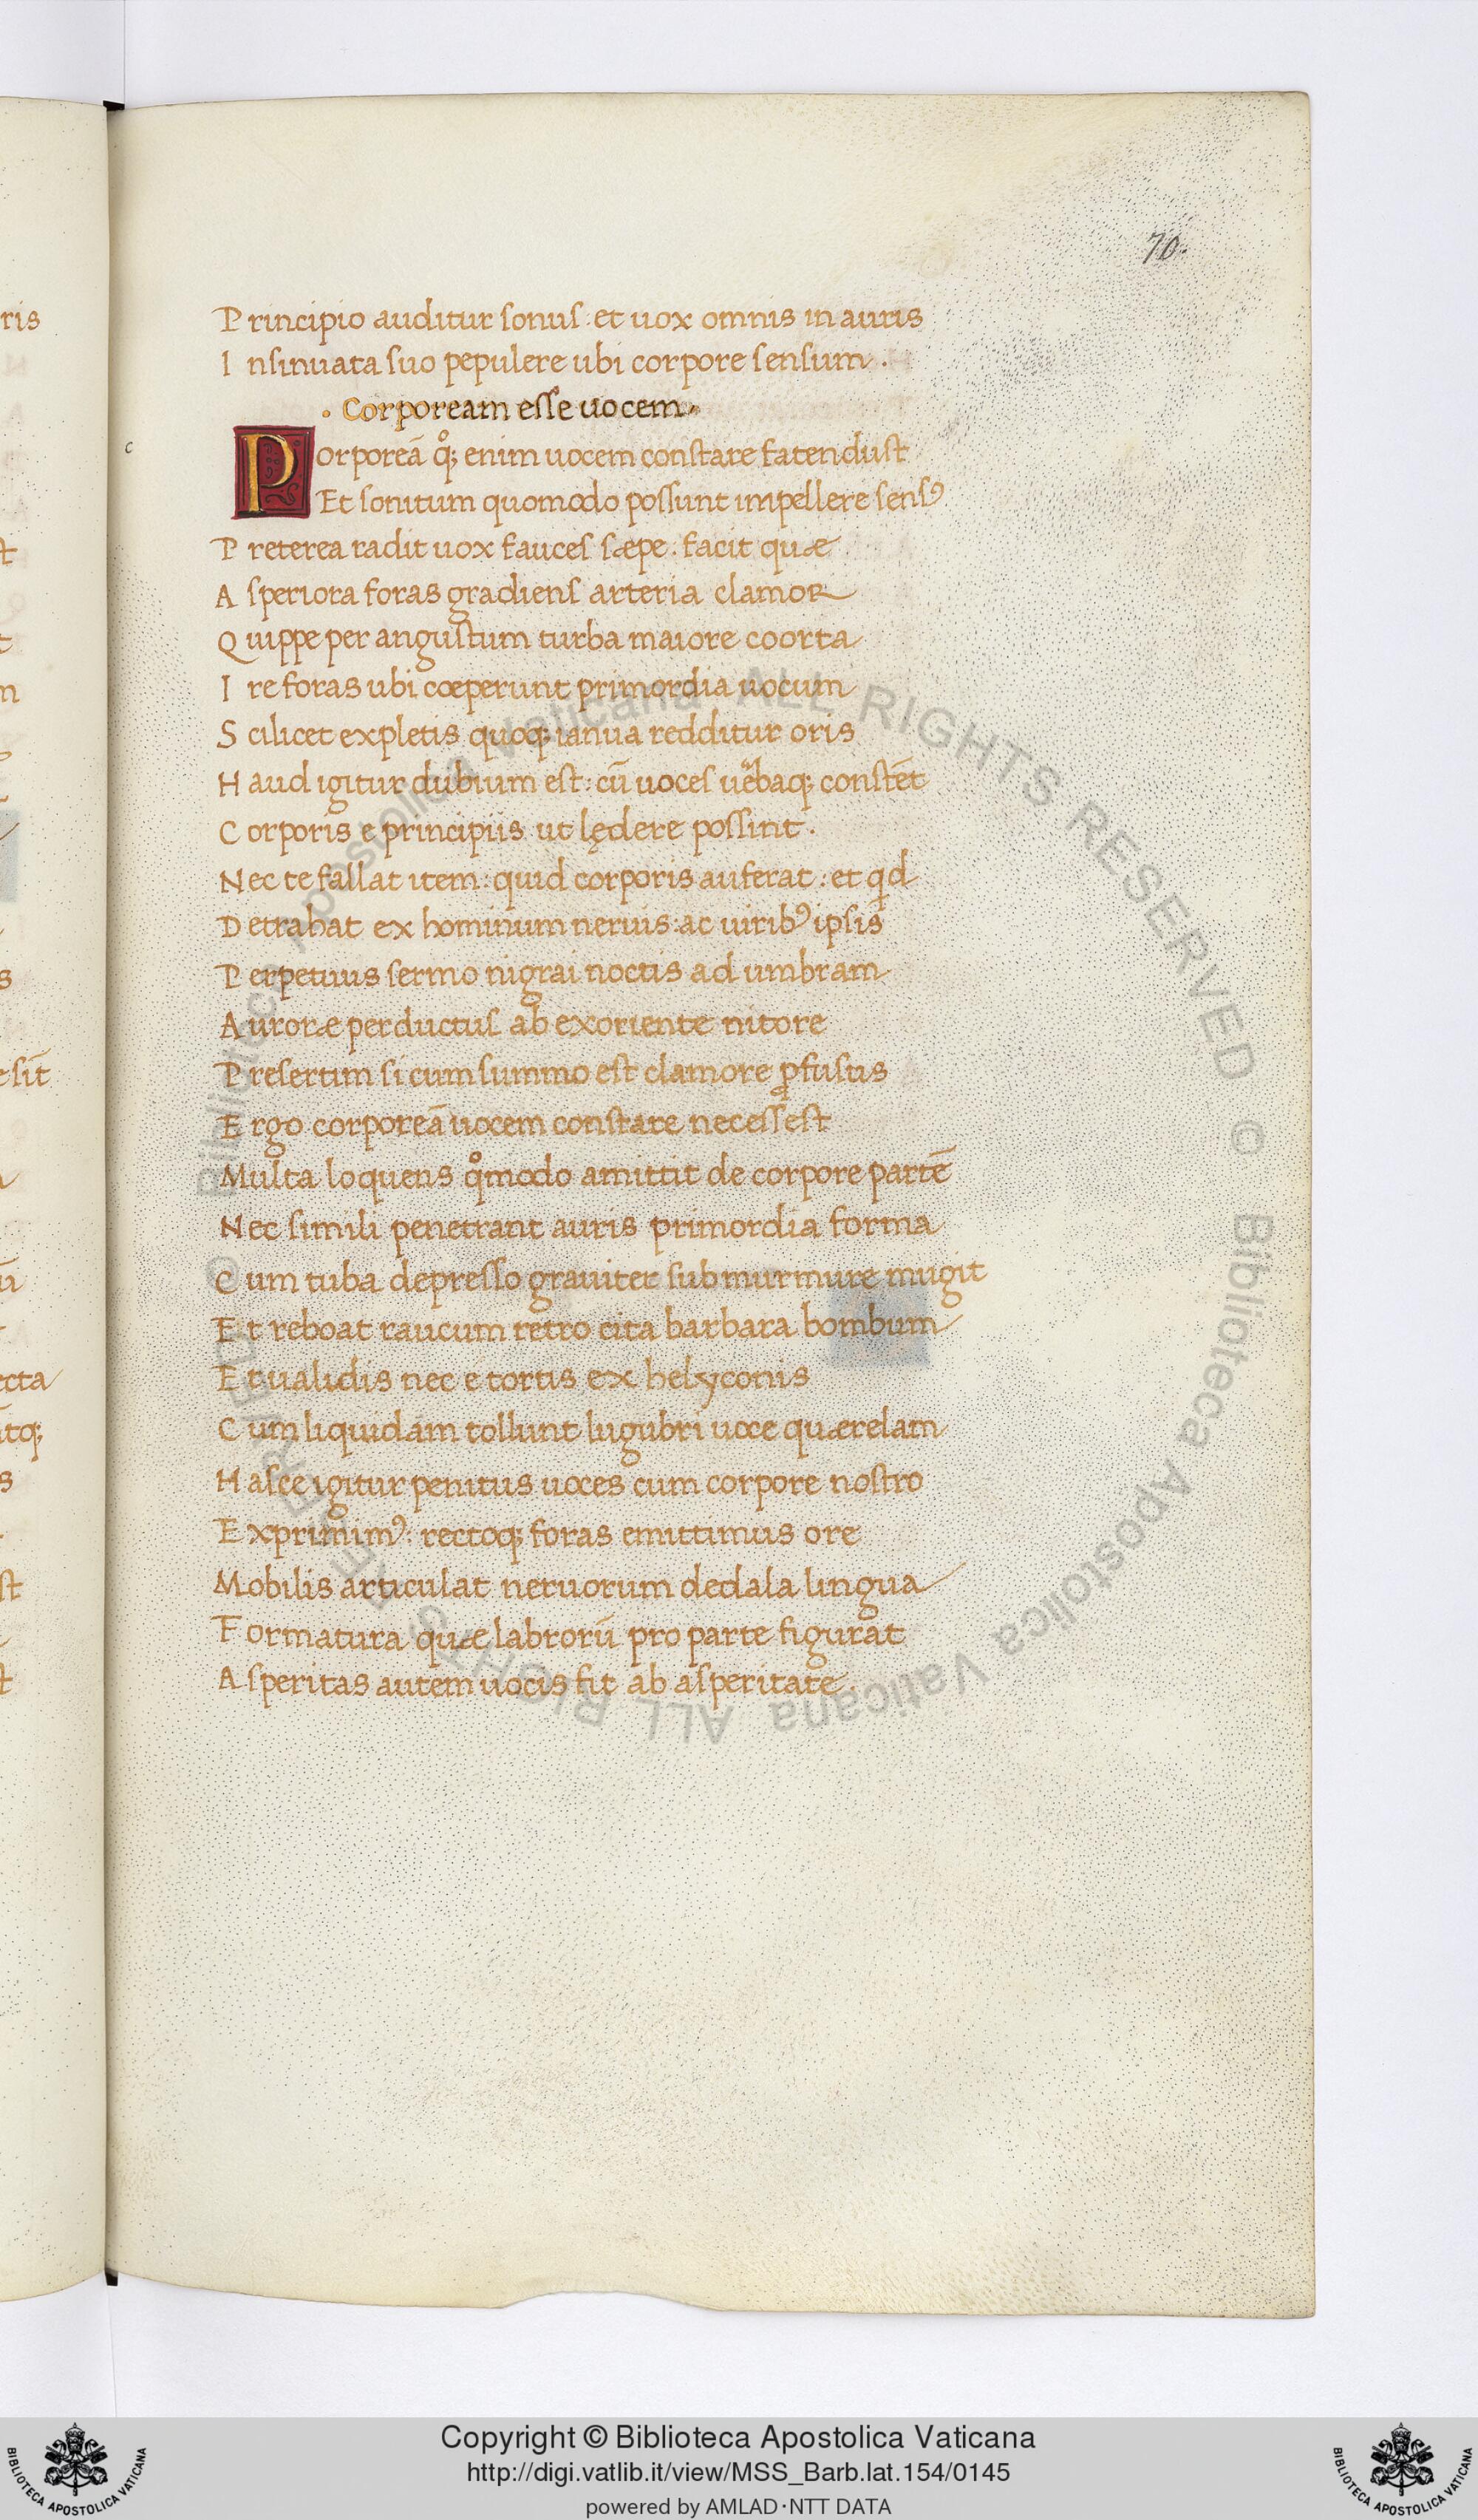 70.
Principio auditur sonus · et uox omnis in auris
Insinuata suo pepulere ubi corpore sensum ·
· Corpoream esse uocem ·
c
Porporeā qͦꝫ enim uocem constare fatendust
Et sonitum quomodo possunt impellere sensꝰ
Preterea radit uox fauces sæpe · facit quæ
Asperiora foras gradiens arteria clamor
Quippe per angustum turba maiore coorta
Ire foras ubi cœperunt primordia uocum
Scilicet expletis quoqꝫ ianua redditur oris
Haud igitur dubium est : cū uoces uēbaqꝫ constēt
Corporis e principiis ut lędere possint ·
Nec te fallat item : quid corporis auferat : et qd
Detrahat ex hominum neruis : ac uiribꝰ ipsis
Perpetuus sermo nigrai noctis ad umbram
Auroræ perductus ab exoriente nitore
Presertim si cum summo est clamore ꝓfusus
Ergo corporeā uocem constare necess est
Multa loquens qͦmodo amittit de corpore partē
Nec simili penetrant auris primordia forma
Cum tuba depresso grauiter sub murmure mugit
Et reboat raucum retro cita barbara bombum
Et ualidis nec e tortis ex helyconis
Cum liquidam tollunt lugubri uoce quærelam
Hasce igitur penitus uoces cum corpore nostro
Exprimimꝰ : rectoqꝫ foras emittimus ore
Mobilis articulat neruorum dedala lingua
Formatura quæ labrorū pro parte figurat
Asperitas autem uocis fit ab asperitate ·
© Biblioteca Apostolica Vaticana ALL RIGHTS RESERVED © Biblioteca Apostolica Vaticana ALL RIGHTS RESERVED
Copyright © Biblioteca Apostolica Vaticana
http://digi.vatlib.it/view/MSS_Barb.lat.154/0145
powered by AMLAD·NTT DATA
BIBLIOTECA APOSTOLICA VATICANA
BIBLIOTECA APOSTOLICA VATICANA